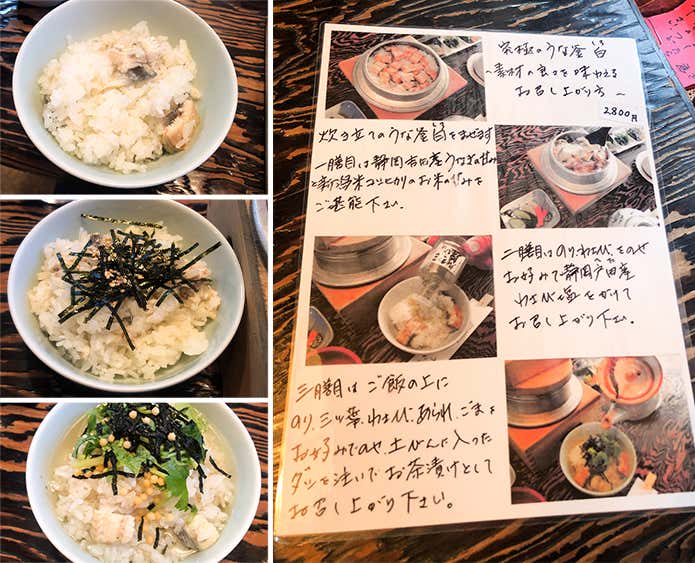 究極のうな釜飯
~素材の良さを味わえる
お召し上がり方~
2,800円
炊き立てのうな釜飯をまぜます
一膳目は静岡吉田産うなぎの甘み
と新潟米コシヒカリのお米の甘みを
ご堪能下さい。
二膳目はのり、わさび、をのせ
お好みで静岡戸田産
わさび塩をかけて
お召し上がり下さい。
三膳目はご飯の上に
のり、三ッ葉、わさび、あられ、ごまを
お好みでのせ、土びんに入った
ダシを注いでお茶漬けとして
お召し上がり下さい。